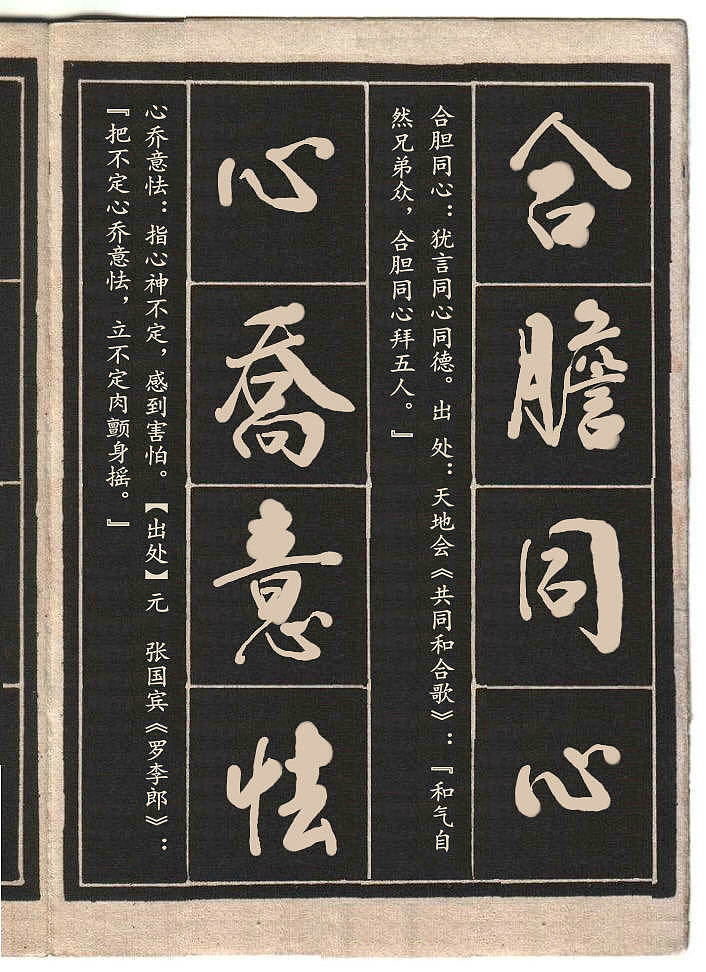 合膽同心
合胆同心：犹言同心同德。出 处：天地会《共同和合歌》：『和气自
然兄弟众，合胆同心拜五人。』
心喬意怯
心乔意怯：指心神不定，感到害怕。【出处】元 张国宾《罗李郎》：
『把不定心乔意怯，立不定肉颤身摇。』